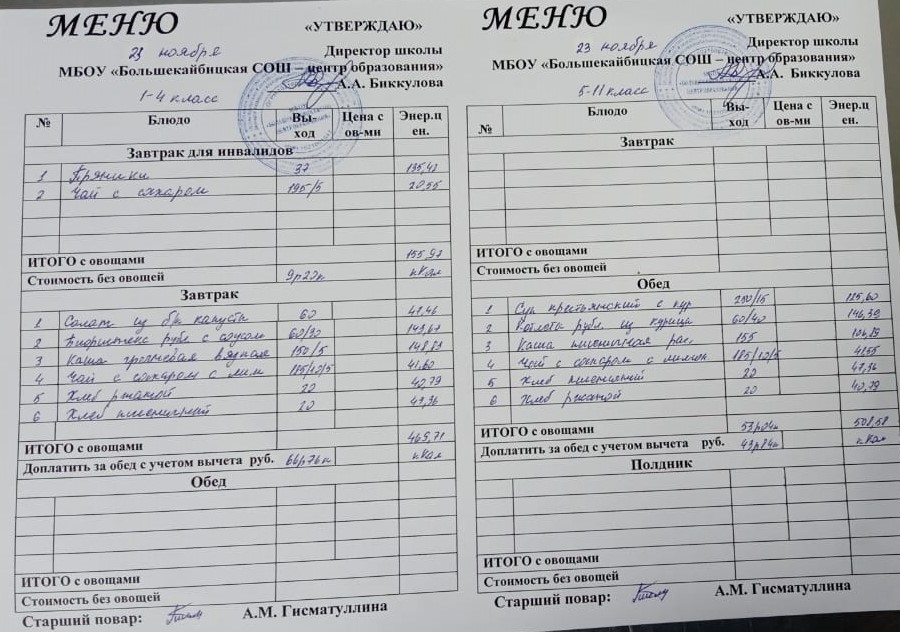 МЕНЮ
«УТВЕРЖДАЮ»
23 ноября
Директор школы
МБОУ «Большекайбицкая СОШ – центр образования»
А.А. Биккулова
1-4 класс
№ Блюдо Вы-ход Цена с ов-ми Энер.ц ен.
Завтрак для инвалидов
1 Пряники 37 135,42
2 Чай с сахаром 195/5 20,55
ИТОГО с овощами 155,97
Стоимость без овощей 9р23к кКал
Завтрак
1 Салат из бк капусты 60
2 рубл с соусом 60/30
3 Каша гречневая вязкая 150/5 148,83
4 Чай с сахаром с лим 185/10/5 41,60
5 Хлеб ржаной 20 40,79
6 Хлеб пшеничный 20
ИТОГО с овощами 465,71
Доплатить за обед с учетом вычета руб. 66р76к кКал
Обед
ИТОГО с овощами
Стоимость без овощей
Старший повар: А.М. Гисматуллина
МЕНЮ
«УТВЕРЖДАЮ»
23 ноября
Директор школы
МБОУ «Большекайбицкая СОШ – центр образования»
А.А. Биккулова
5-11 класс
№ Блюдо Вы-ход Цена с ов-ми Энер.ц ен.
Завтрак
ИТОГО с овощами
Стоимость без овощей
Обед
1 Суп крестьянский с кур 250/15 125,60
2 Котлета рубл. из курица 60/40 146,38
3 Каша пшеничная рас. 155
4 Чай с сахаром с лимон 185/10/5
5 Хлеб пшеничный 20
6 Хлеб ржаной 20 40,79
ИТОГО с овощами 53р04к 508,58
Доплатить за обед с учетом вычета руб. 43р84к кКал
Полдник
ИТОГО с овощами
Стоимость без овощей
Старший повар: А.М. Гисматуллина